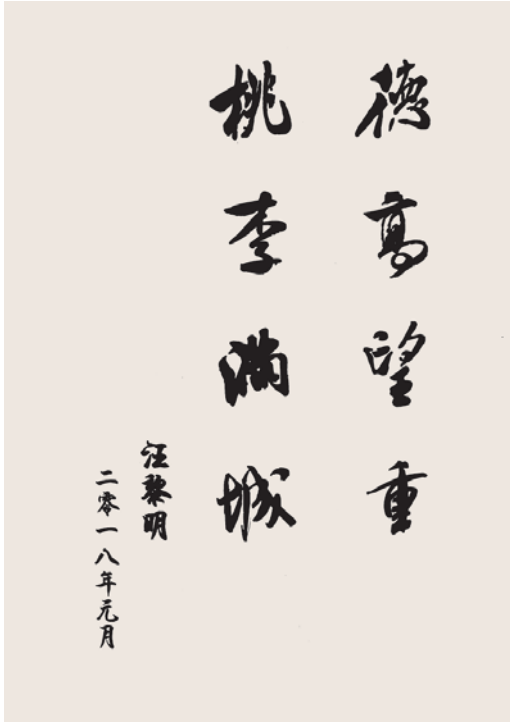 德高望重
桃李满城
汪黎明
二零一八年元月